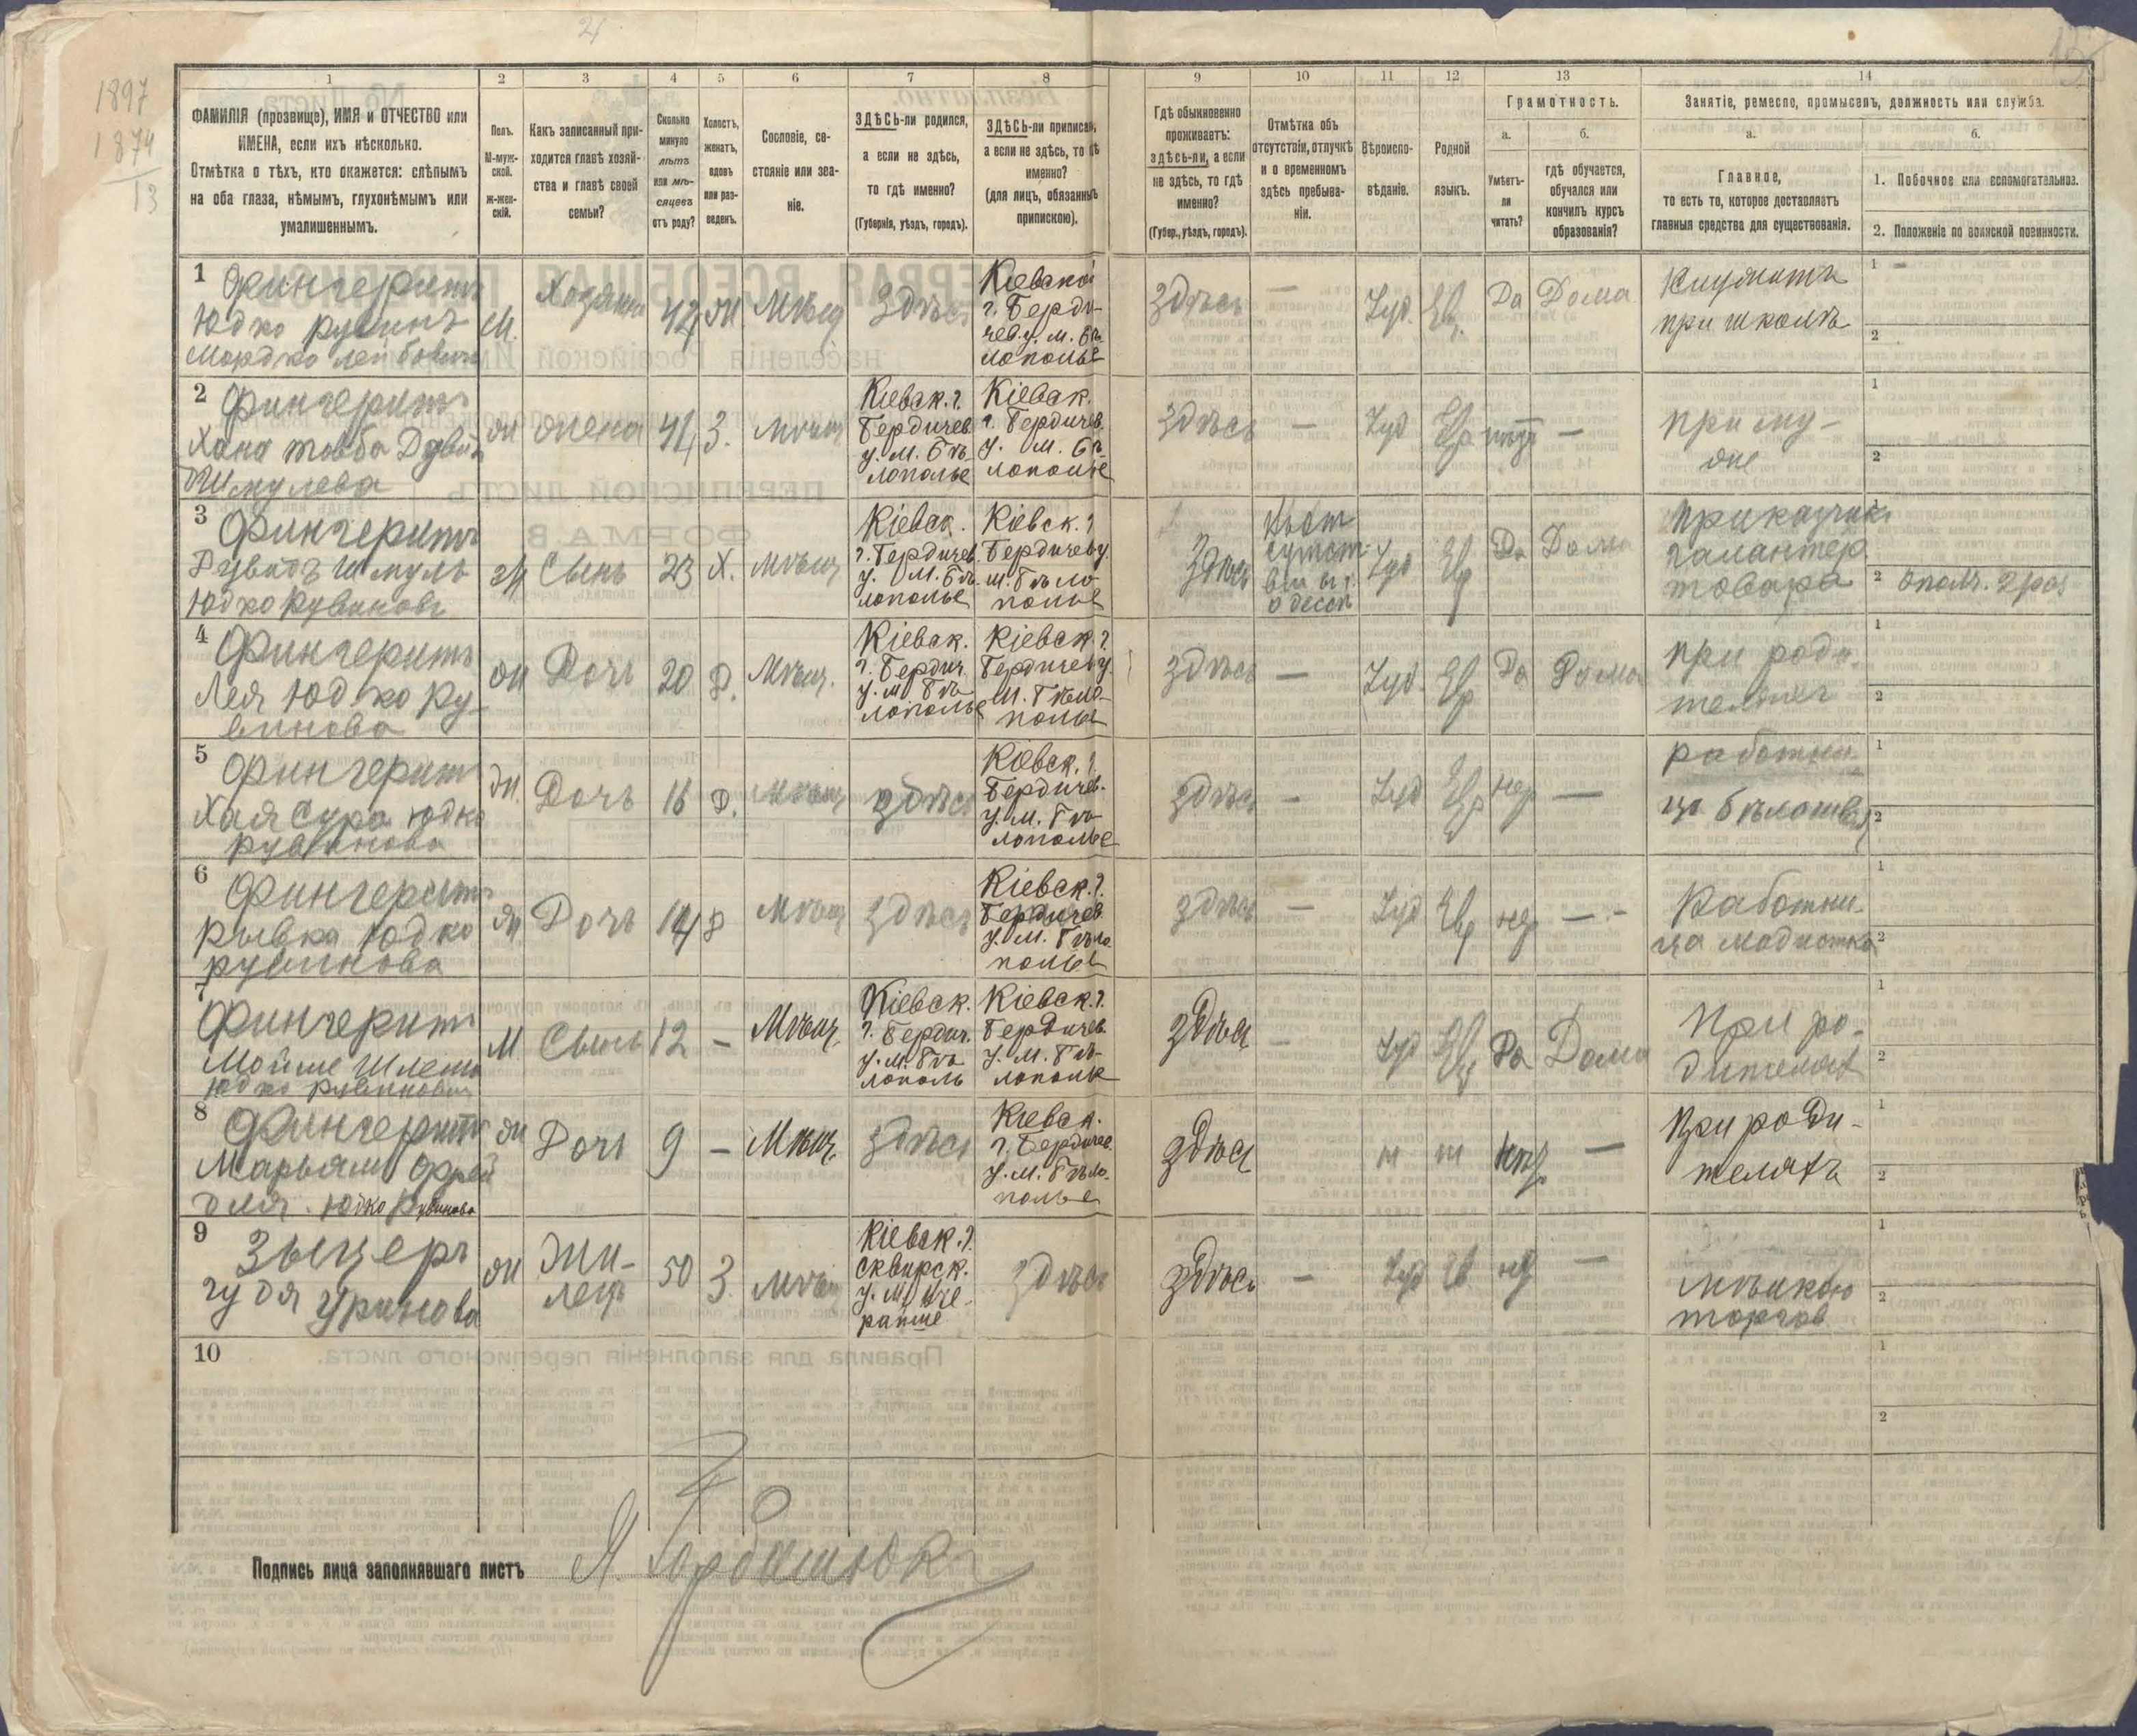 2
1897
1874
13
1
2
3
4
5
6
7
8
9
10
11
12
13
14
ФАМИЛІЯ (прозвище), ИМЯ и ОТЧЕСТВО или
ИМЕНА, если ихъ нѣсколько.
Отмѣтка о тѣхъ, кто окажется: слѣпымъ
на оба глаза, нѣмымъ, глухонѣмымъ или
умалишеннымъ.
Полъ.
М-муж-
ской.
ж-жен-
скій.
Какъ записанный при-
ходится главѣ хозяй-
ства и главѣ своей
семьи?
Сколько
минуло
лѣтъ
или мѣ-
сяцевъ
отъ роду?
Холостъ,
женатъ,
вдовъ
или раз-
веденъ.
Сословіе, со-
стояніе или зва-
ніе.
ЗДѢСЬ-ли родился,
а если не здѣсь,
то гдѣ именно?
(Губернія, уѣздъ, городъ).
ЗДѢСЬ-ли приписан,
а если не здѣсь, то гдѣ
именно?
(для лицъ, обязанныхъ
припискою).
Гдѣ обыкновенно
проживаетъ:
здѣсь-ли, а если
не здѣсь, то гдѣ
именно?
(Губер., уѣздъ, городъ).
Отмѣтка объ
отсутствіи, отлучкѣ
и о временномъ
здѣсь пребыва-
ніи.
Вѣроиспо-
вѣданіе.
Родной
языкъ.
Грамотность.
а.
Умѣетъ-
ли
читать?
б.
гдѣ обучается,
обучался или
кончилъ курсъ
образованія?
Занятіе, ремесло, промыселъ, должность или служба.
а.
Главное,
то есть то, которое доставляетъ
главныя средства для существованія.
б.
1. Побочное или вспомогательное.
2. Положеніе по воинской повинности.
1 Фингеритъ
Юдко рувинъ
Мордко лейбовичъ
М.
Хозяинъ
42
Ж
Мѣщ
Здѣсь
Кіевской
г. Берди-
чев. у. м. Бѣ-
лополье
Здѣсь
—
Іуд.
Евр.
Да
Дома
Служитъ
при школѣ
1 —
2
2 Фингеритъ
Хана товба
Шмулева
ж
жена
41
З.
мѣщ
Кіевск. г.
Бердичев.
у. м. Бѣ-
лополье
Кіевск.
г. Бердичев.
у. м. Бѣ-
лополье
Здѣсь
—
Іуд
Евр
нѣт
—
при му-
жѣ
1
2
3 Фингеритъ
Шмуль
Юдко Рувиновъ
м
Сынъ
23
Х.
мѣщ
Кіевск.
г. Бердичев.
у. м. Бѣ-
лополье
Кіевск. г
Бердичев у.
м. Бѣло
полье
Здѣсь
Одессѣ
Іуд
Евр
Да
Дома
приказчик
галантер.
товара
1
2 ополч. 2 раз
4 Фингеритъ
Лея Юдко Ру-
винова
ж
Дочь
20
Д.
Мѣщ.
Кіевск.
г. Бердич.
у. м Бѣ-
лополье
Кіевск. г
Бердичев у.
м. Бѣло-
полье
здѣсь
—
Іуд.
Евр
Да
Дома
при роди-
теляхъ
1
2
5 Фингеритъ
Хая Сура Юдко
рувинова
ж.
Дочь
16
Д.
Мѣщ
здѣсь
Кіевск. г.
Бердичев.
у. м. Бѣ-
лополье
здѣсь
—
Іуд
Евр
нет
—
работни-
ца бѣлошвея
1
2
6 Фингеритъ
Рывка Юдко
рувинова
ж
Дочь
14
Д
Мѣщ
здѣсь
Кіевск. г.
Бердичев.
у. м. Бѣло
полье
здѣсь
—
Іуд
Евр
нет
—
Работни-
ца модистка
1
2
7
Фингеритъ
Мойше Шлема
Юдко рувиновичъ
М
Сынъ
12
—
Мѣщ.
Кіевск.
г. Бердич.
у. м. Бѣ
лополь
Кіевск. г.
Бердичев.
у. м. Бѣ-
лополье
здѣсь
—
Іуд
Евр
Да
Дома
При ро-
дителяхъ
1
2
8 Фингеритъ
Марьям Фрей
для. Юдко Рувинова
ж
Дочь
9
—
Мѣщ.
здѣсь
Кіевск.
г. Бердичев.
у. м. Бѣло-
полье
здѣсь
—
При роди-
теляхъ
1
2
9 Зыцеръ
гудя
ж
Жи-
лец
50
З
мѣщ
Кіевск. г.
Сквирск.
у. м.
здѣсь
здѣсь
—
Іуд
Ев
—
торгов
1
2
10
1
2
Подпись лица заполнявшаго листъ